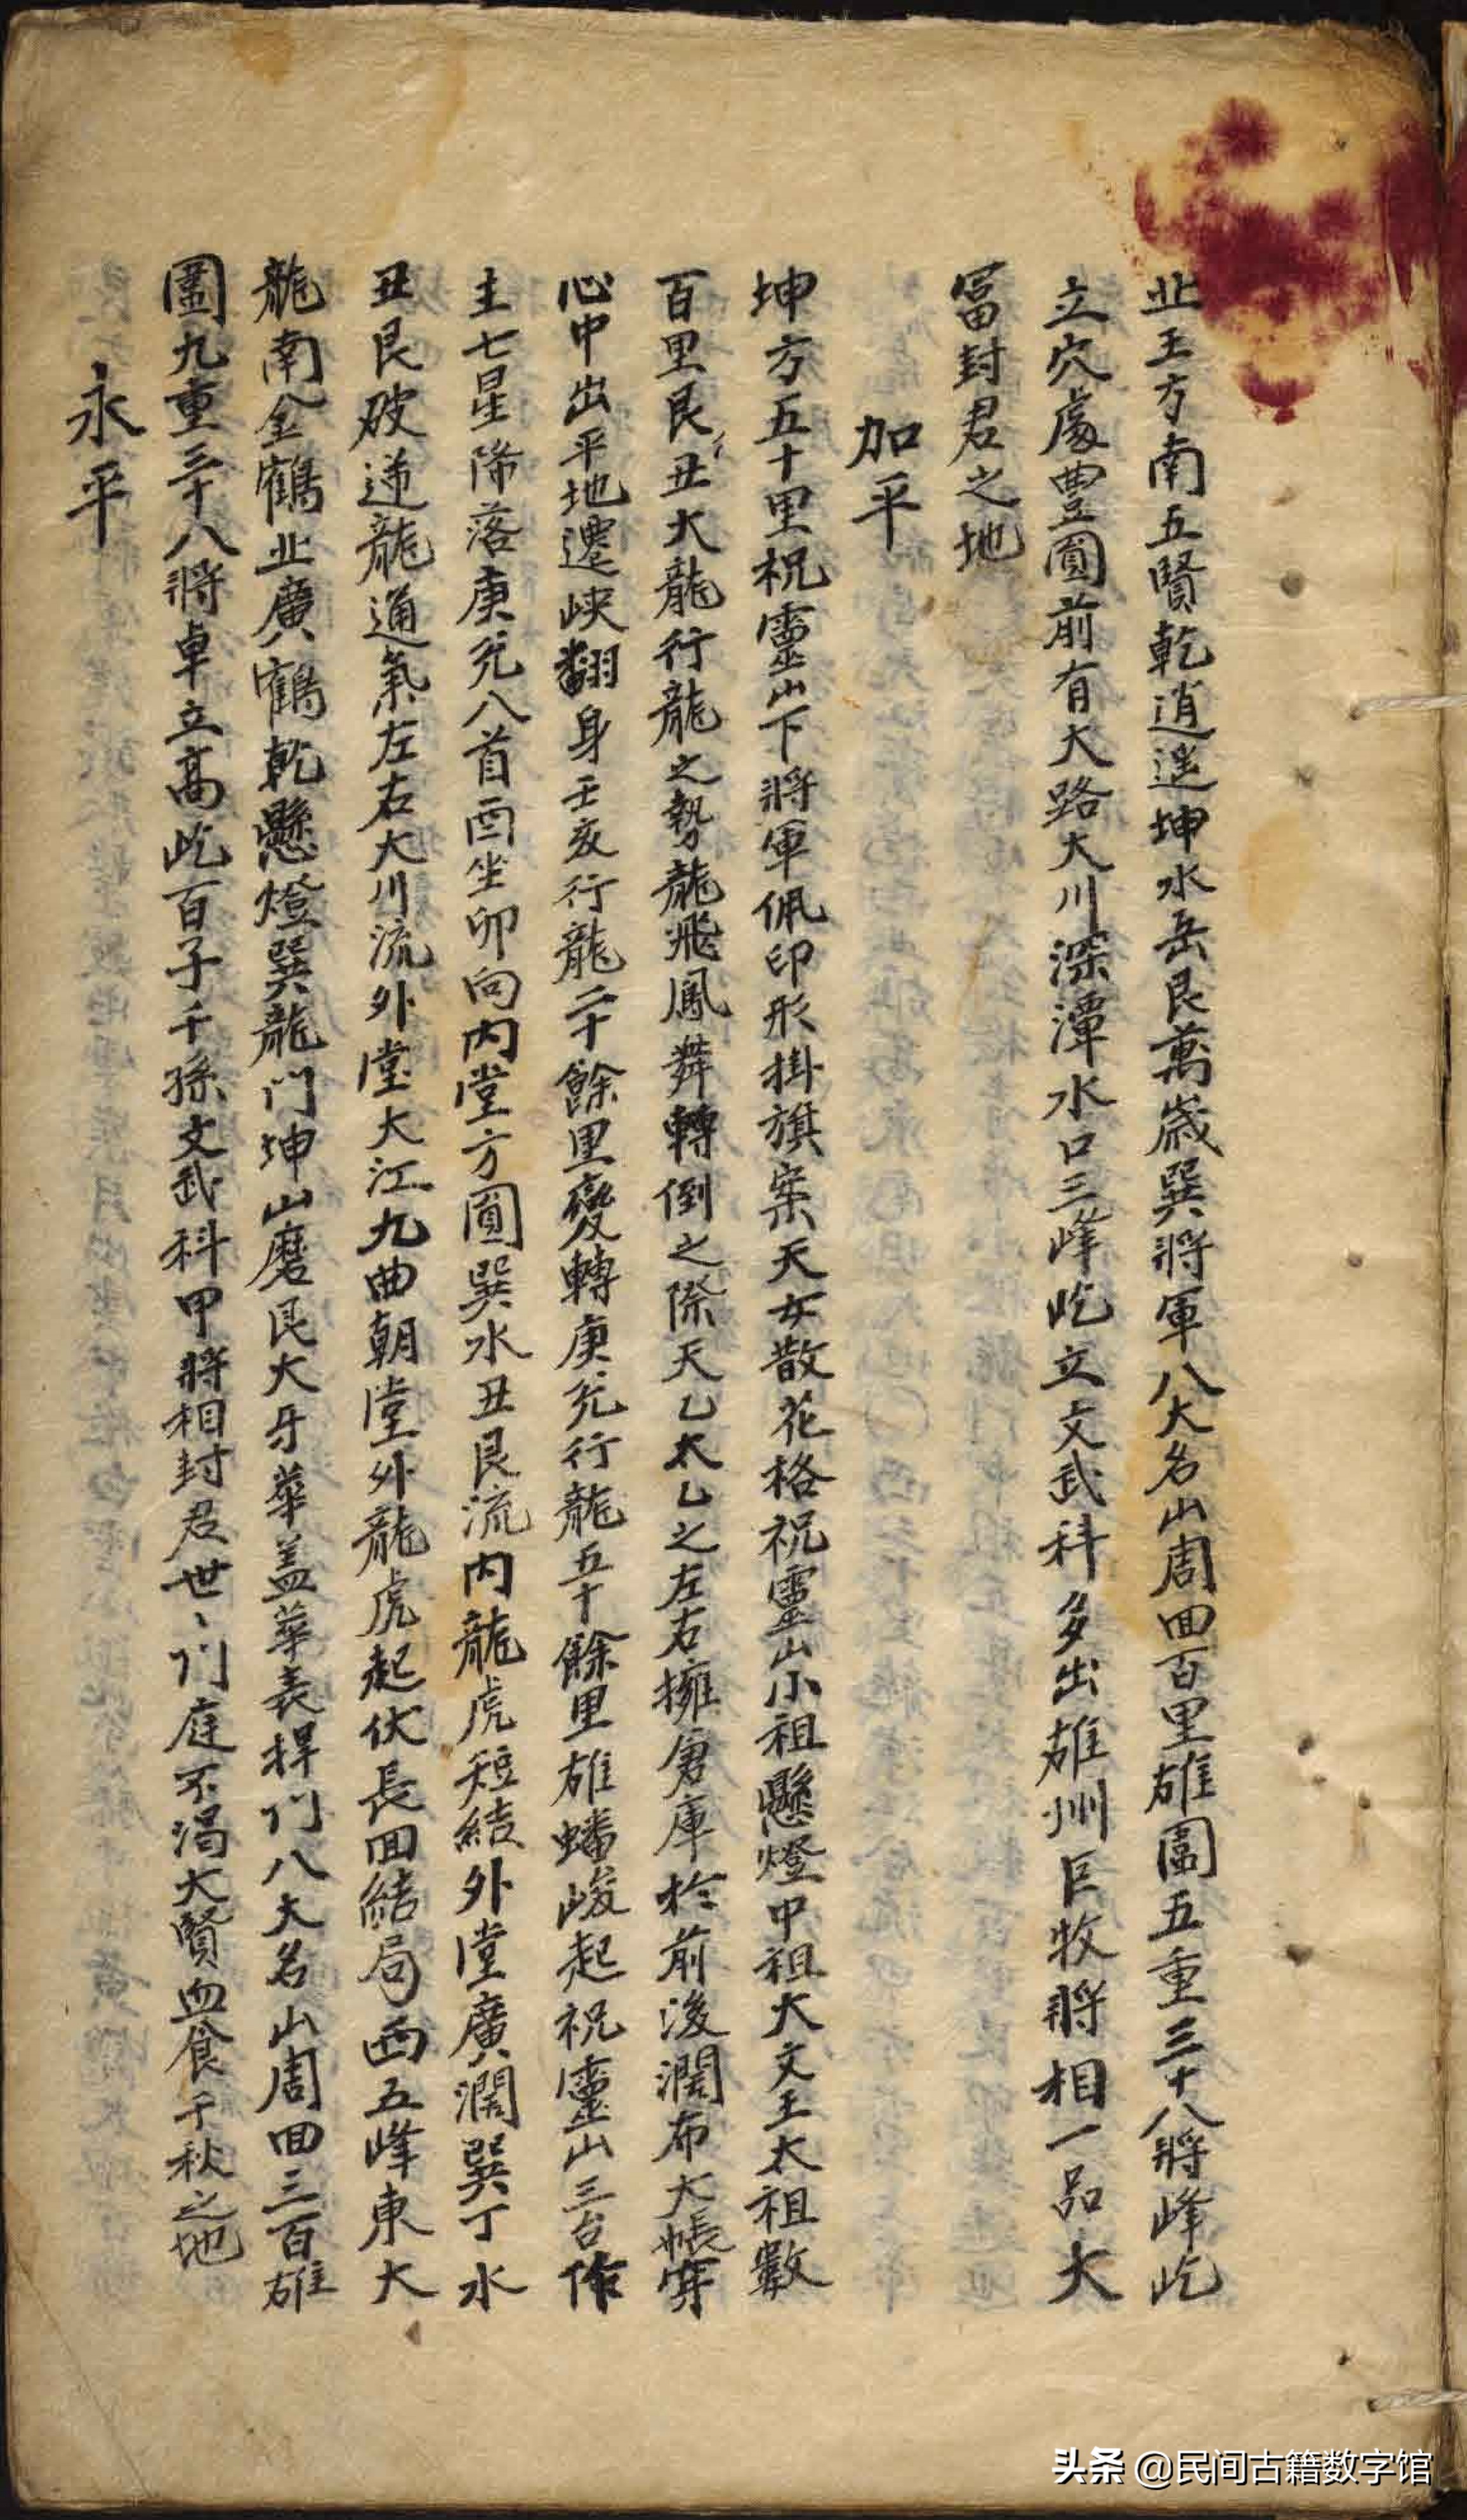 北王方南五賢乾逍遥坤水岳艮萬歲巽將軍八大名山周回百里雄圖五重三十八將峰屹
立穴處豊圓前有大路大川深潭水口三峰屹立文武科多出雄州巨牧將相一品大
冨封君之地
加平
坤方五十里祝靈山下將軍佩印形掛旗案天女散花格祝靈山小祖懸燈中祖大文王太祖數
百里艮丑大龍行龍之勢龍飛鳳舞轉倒之際天乙太乙之左右擁倉庫於前後濶布大帳穿
心中出平地遷峽翻身壬亥行龍二十餘里變轉庚兊行龍五十餘里雄蟠峻起祝靈山三台作
主七星降落庚兊八首酉坐卯向內堂方圓巽水丑艮流內龍虎短結外堂廣濶巽丁水
丑艮破逆龍通氣左右大川流外堂大江九曲朝堂外龍虎起伏長回結局西五峰東大
龍南金鶴北廣鶴乾懸燈巽龍门坤山磨艮大牙華盖華表捍门八大名山周回三百雄
圖九重三十八將卓立高屹百子千孫文武科甲將相封君世〻门庭不渴大賢血食千秋之地
永平
头条 @民间古籍数字馆